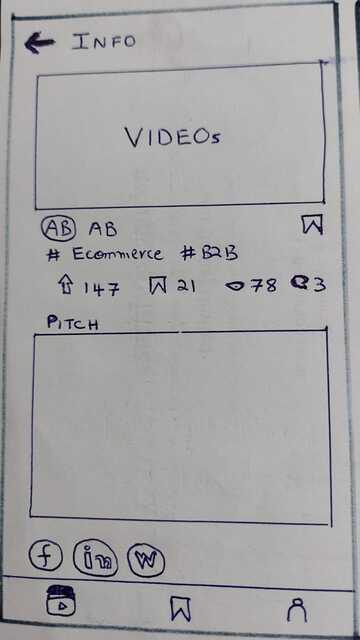 INFO
VIDEOs
AB AB
# Ecommerce #B2B
147 21 78 3
PITCH
f in W